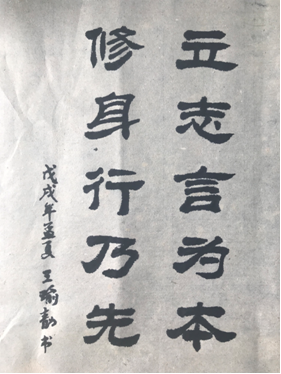 立志言为本
修身行乃先
戊戌年孟夏 王瑜书